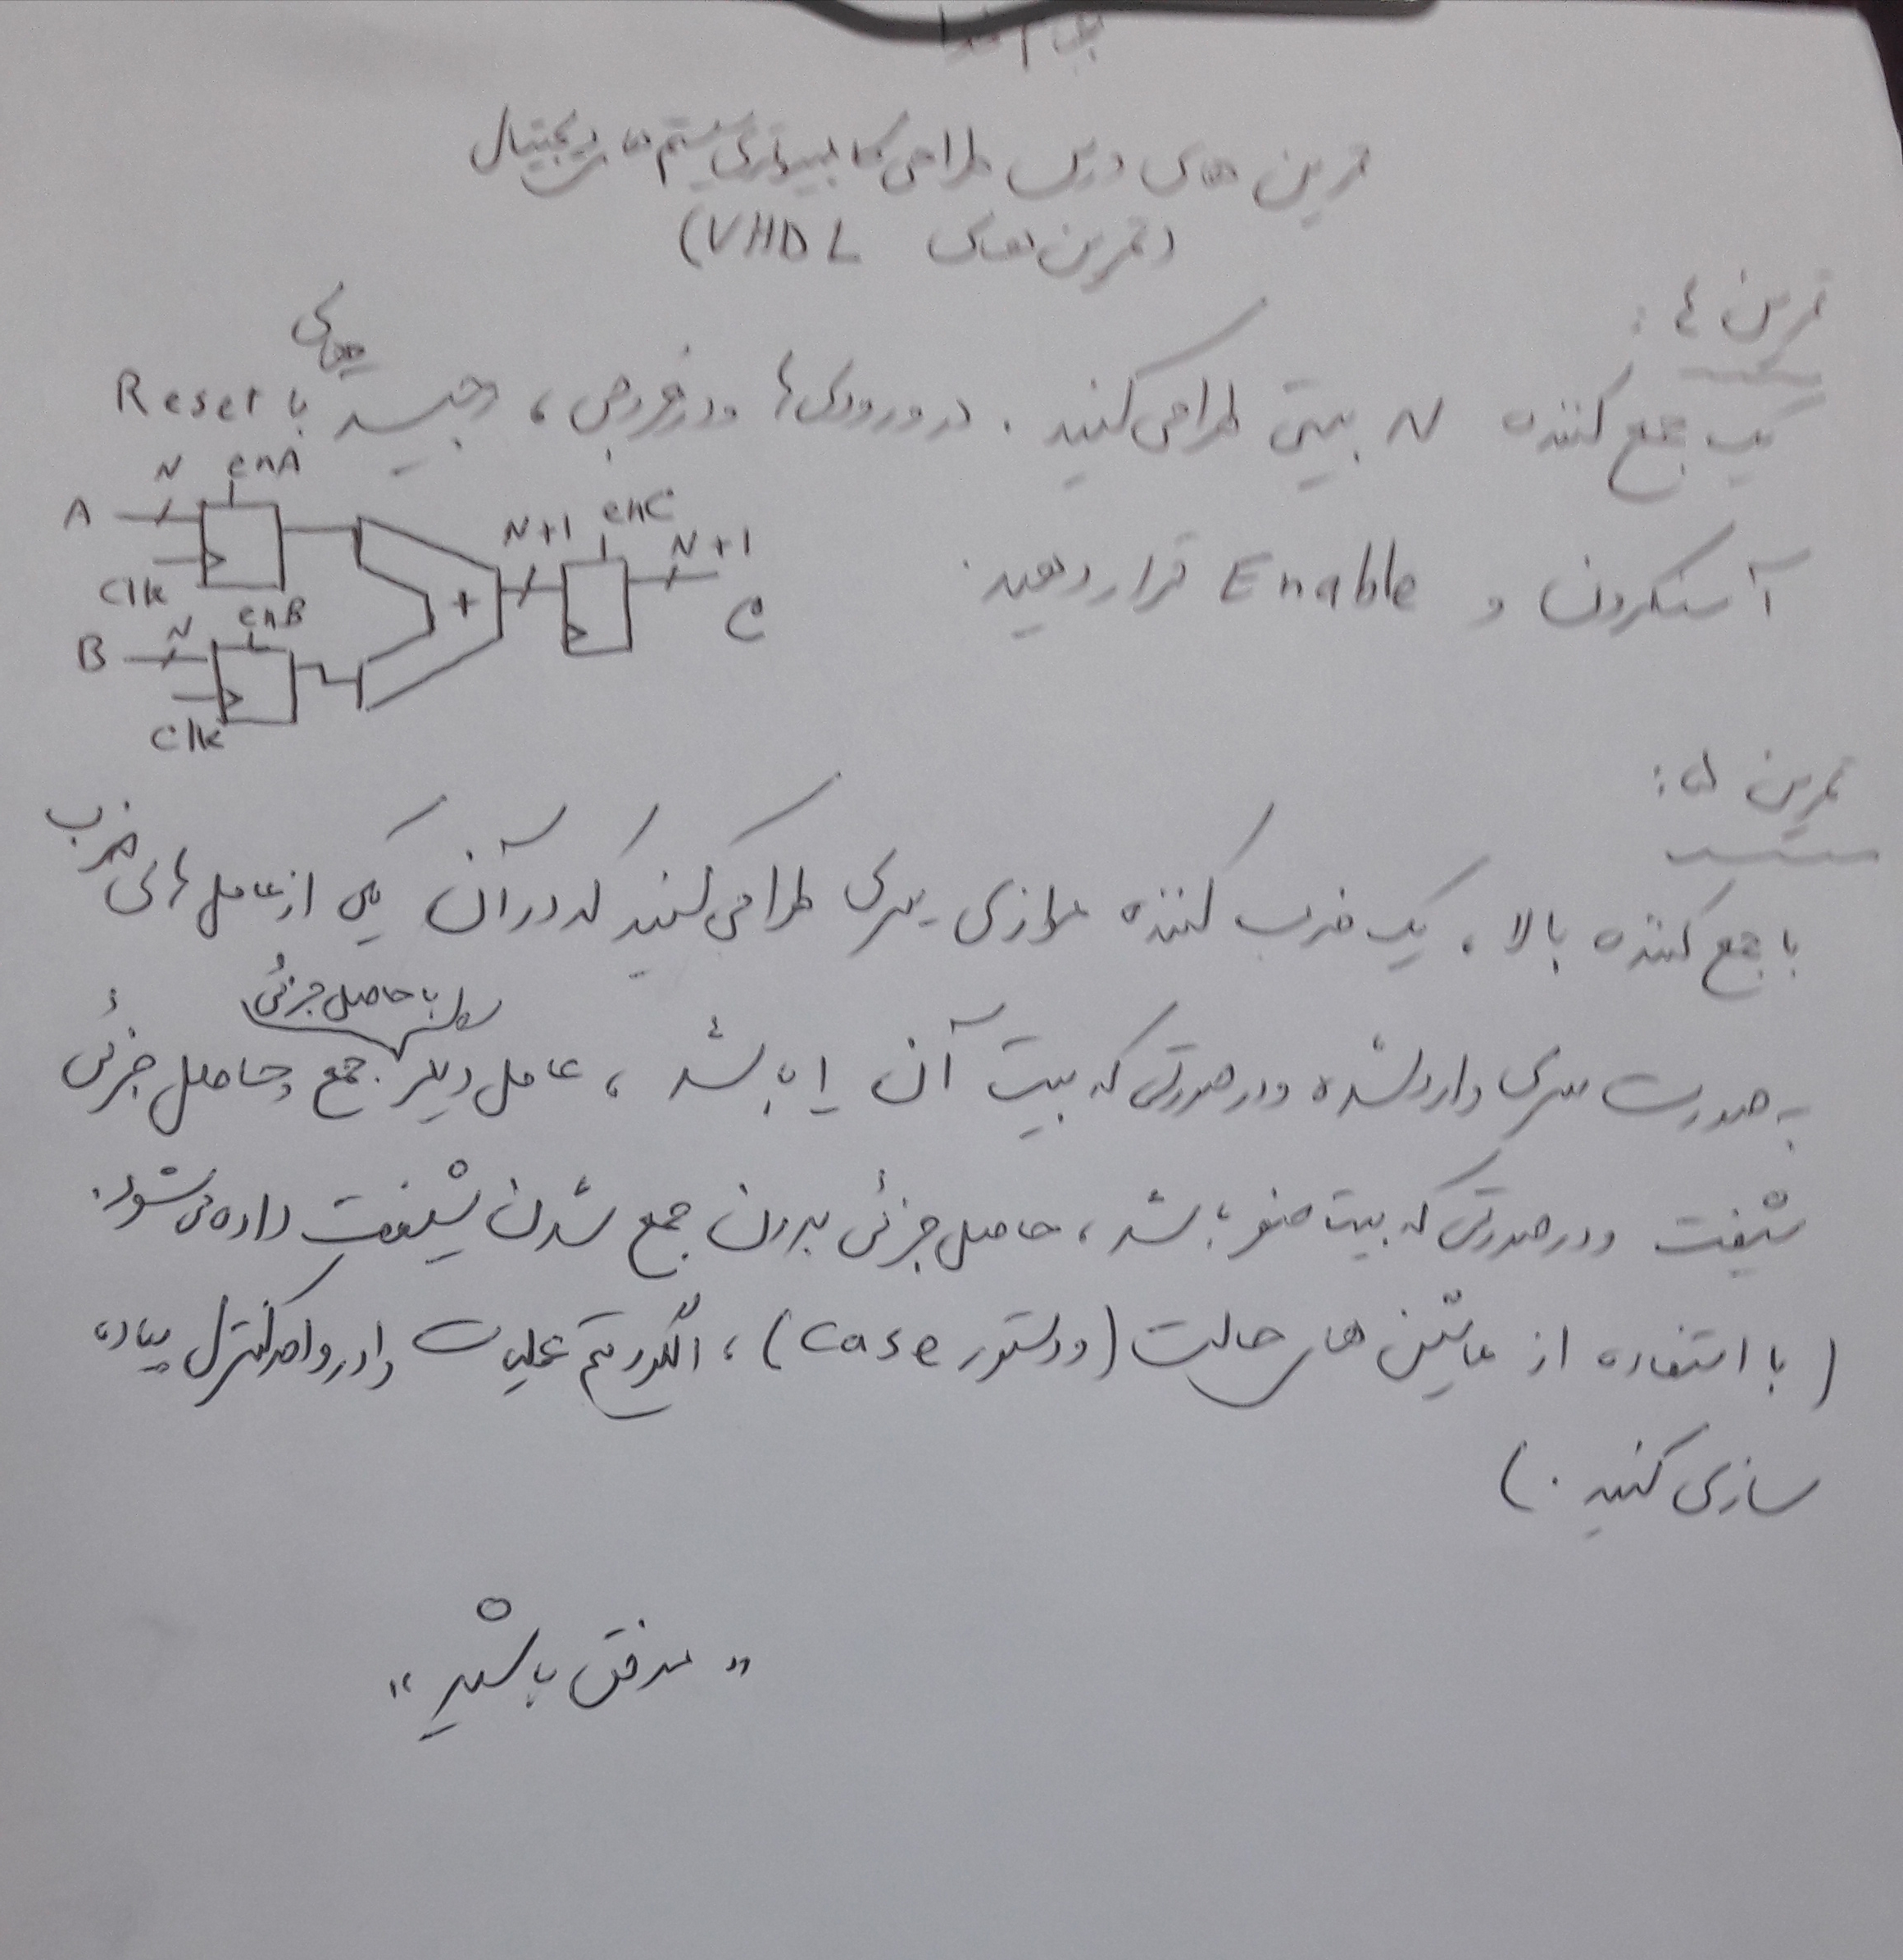 بنام خدا
تمرین های درس طراحی کامپیوتری سیستم های دیجیتال
(تمرین های VHDL)
تمرین ٤ :
یک جمع کننده N بیتی طراحی کنید . در ورودی ها و در خروجی ، رجیستر هایی با Reset
آسنکرون و Enable قرار دهید .
A N enA
Clk
B N enB
Clk
+
N+1 enC N+1
C
تمرین ۵ :
با جمع کننده بالا ، یک ضرب کننده موازی سری طراحی کنید که در آن یکی از عامل های ضرب
به صورت سری وارد شده و در صورتی که بیت آن ١ باشد ، عامل دیگر با حاصل جزئی جمع و حاصل جزئی
شیفت و در صورتی که بیت صفر باشد ، حاصل جزئی بدون جمع شدن شیفت داده می شود .
( با استفاده از ماشین های حالت (و دستور case) ، الگوریتم عملیات را در واحد کنترل پیاده
سازی کنید . )
" موفق باشید "